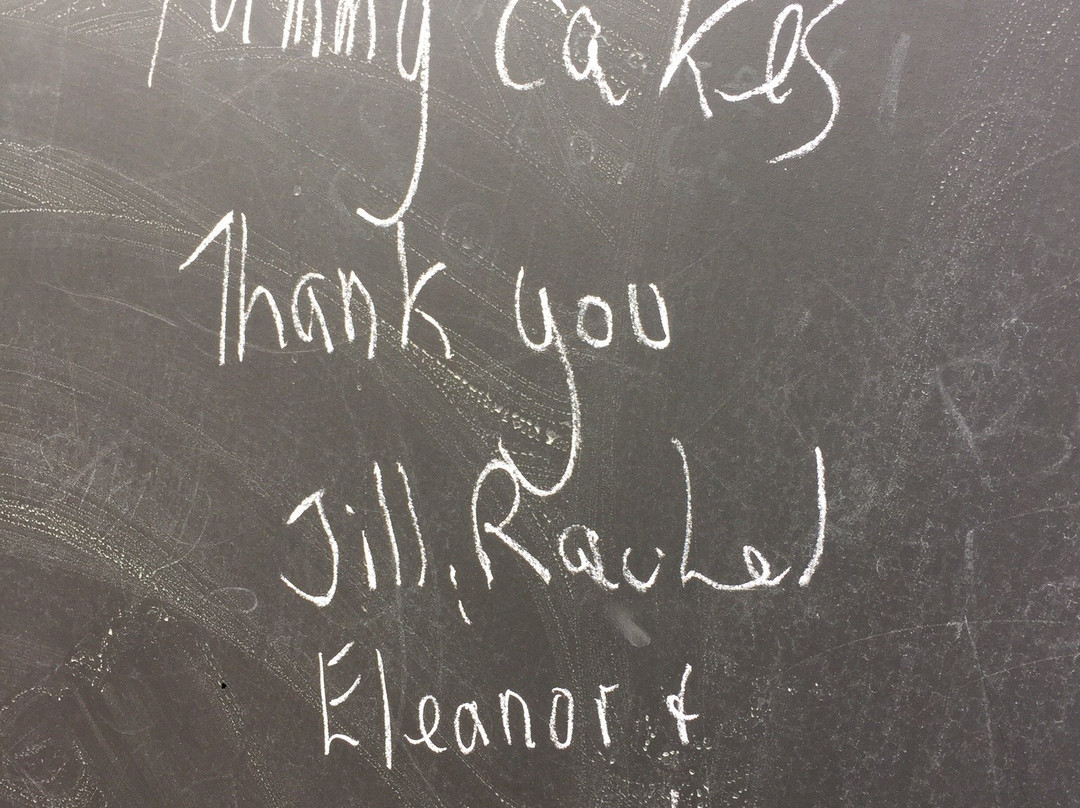 Yummy cakes
Thank you
Jill, Rachel
Eleanor &